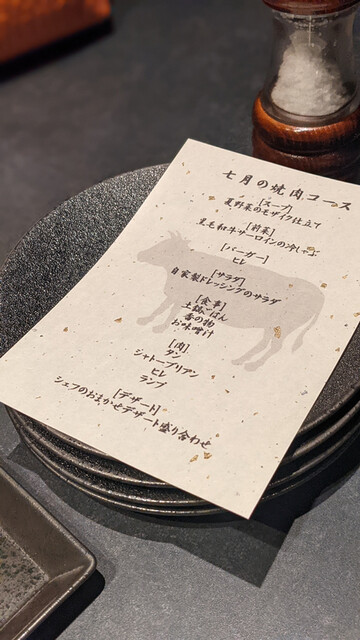 七月の焼肉コース
[スープ]
夏野菜のモザイク仕立て
[前菜]
黒毛和牛サーロインの冷しゃぶ
[バーガー]
ヒレ
[サラダ]
自家製ドレッシングのサラダ
[食事]
土鍋ごはん
香の物
お味噌汁
[肉]
タン
シャトーブリアン
ヒレ
ランプ
[デザート]
シェフのおまかせデザート盛り合わせ